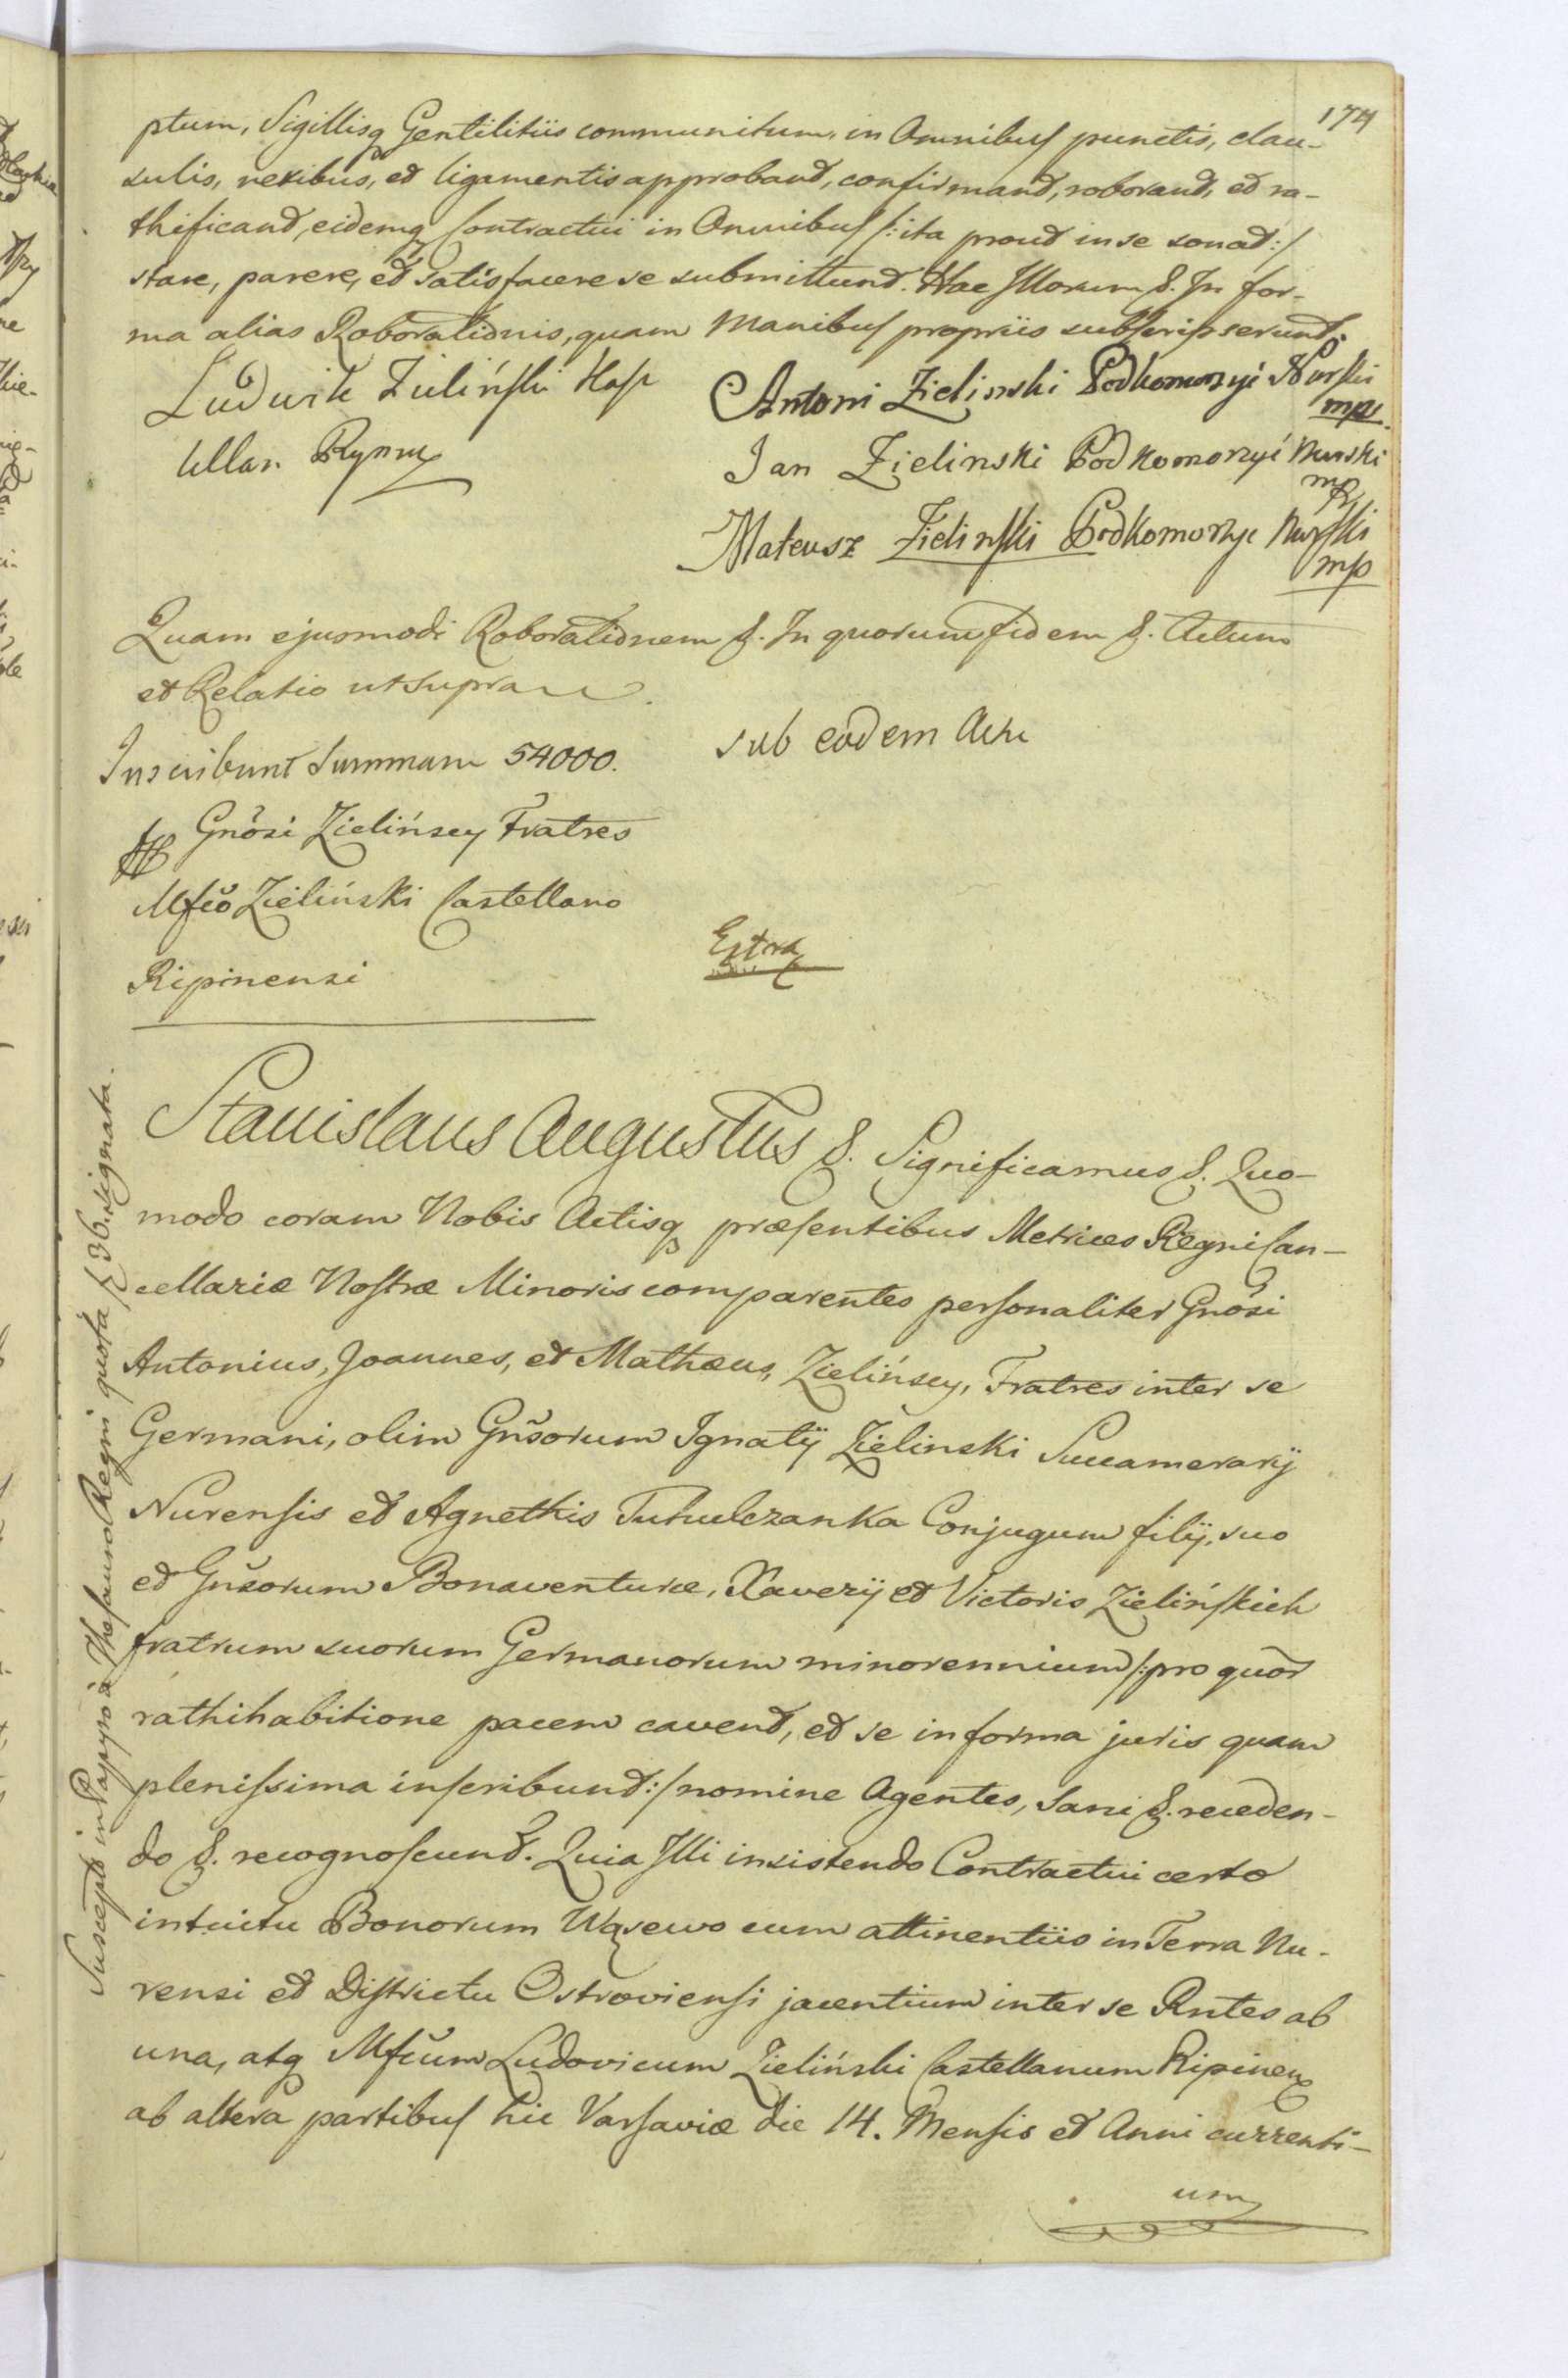 174
ptum, Sigillisq Gentilitiis communitum, in Omnibus punctis, clau-
sulis, nexibus, et ligamentis approband, confirmand, roborand, et ra-
thificand, eidemq Contractui in Omnibus /: ita prout in se sonat :/
stare, parere, et satisfacere se submittund. Hac Illorum &. In for-
ma alias Roborationis, quam Manibus propriis subscripserunt.
Ludwik Zieliński Kasz
Antoni Zielinski Podkomorzyć Nurski
mp.
Jan Zielinski Podkomorzyć Nurski
mp
Mateusz Zielinski Podkomorzyc Nurski
mp
Quam ejusmodi Roborationem &. In quorum fidem &. Actum
et Relatio ut supra
Inscribunt Summam 54000.
sub eodem Actu
Gnosi Zielińscy Fratres
Mfco Zieliński Castellano
Extra
Ripinensi
Stanislaus Augustus &. Significamus &. Quo-
modo coram Nobis Actisq præsentibus Metrices Regni Can-
cellariæ Nostræ Minoris comparentes personaliter Gnosi
Antonius, Joannes, et Mathæus, Zielińscy, Fratres inter se
Germani, olim Gnsorum Ignatij Zielinski Succamerarij
Nurensis et Agnethis Tuhulczanka Conjugum filij, suo
et Gnsorum Bonaventuræ, Xaverij et Victoris Zielińskich
fratrum suorum Germanorum minorennium /: pro quor
rathihabitione pacem cavent, et se in forma juris quam
plenissima inscribunt :/ nomine Agentes, Sani &. receden-
do &. recognoscunt. Quia Illi insistendo Contractui certo
intuitu Bonorum Wąsewo cum attinentiis in Terra Nu-
rensi et Districtu Ostroviensi jacentium inter se Rntes ab
una, atq Mfcum Ludovicum Zieliński Castellanum Ripinen
ab altera partibus hic Varsaviæ die 14. Mensis et Anni currenti-
um
Suscepta in Papyro à Thesauro Regni quota f 36. signata.